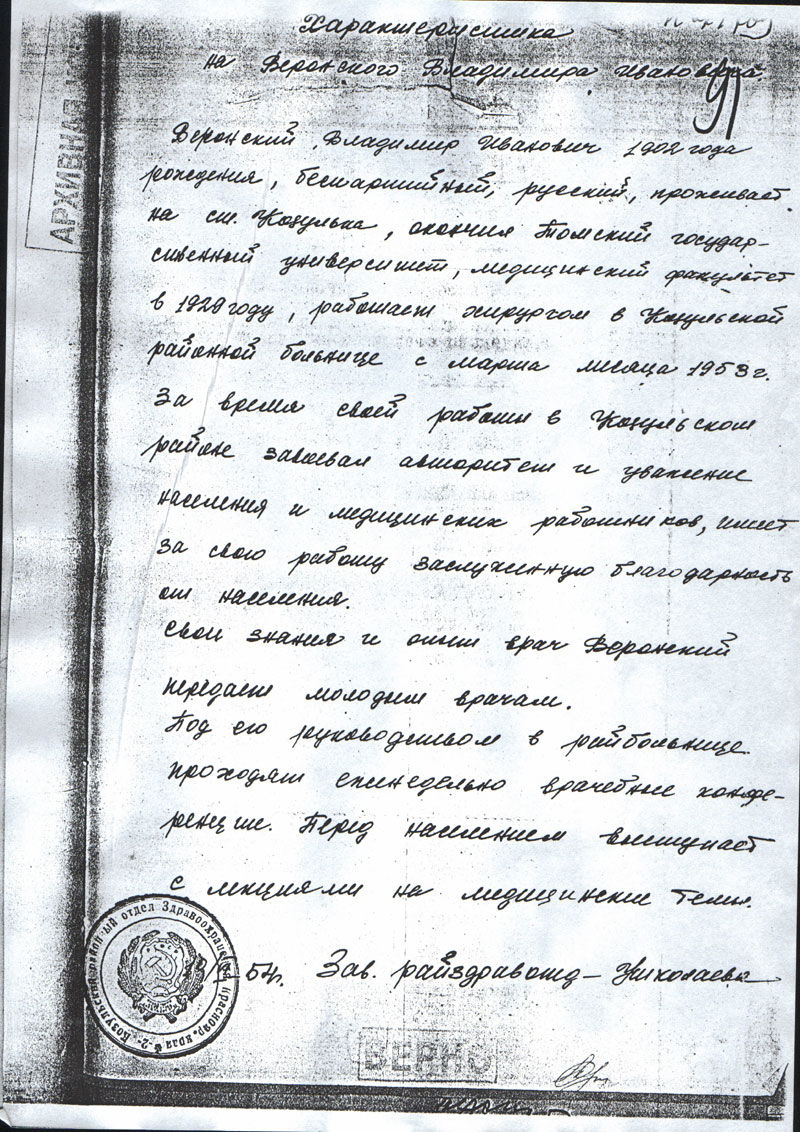 Характеристика
на Веронского Владимира Ивановича.
91
АРХИВНАЯ
Веронский, Владимир Иванович 1902 года
рождения, беспартийный, русский, проживает
на ст. Козулька, окончил Томский государ-
ственный университет, медицинский факультет
в 1929 году, работает хирургом в Козульской
районной больнице с марта месяца 1953 г.
За время своей работы в Козульском
районе завоевал авторитет и уважение
населения и медицинских работников, имеет
за свою работу заслуженную благодарность
от населения.
Свои знания и опыт врач Веронский
передает молодым врачам.
Под его руководством в райбольнице
проходят еженедельно врачебные конфе-
ренции. Перед населением выступает
с лекциями на медицинские темы.
54г. Зав. райздравотд - Николаева
Козульский районный отдел Здравоохранения Краснояр. края
ВЕРНО